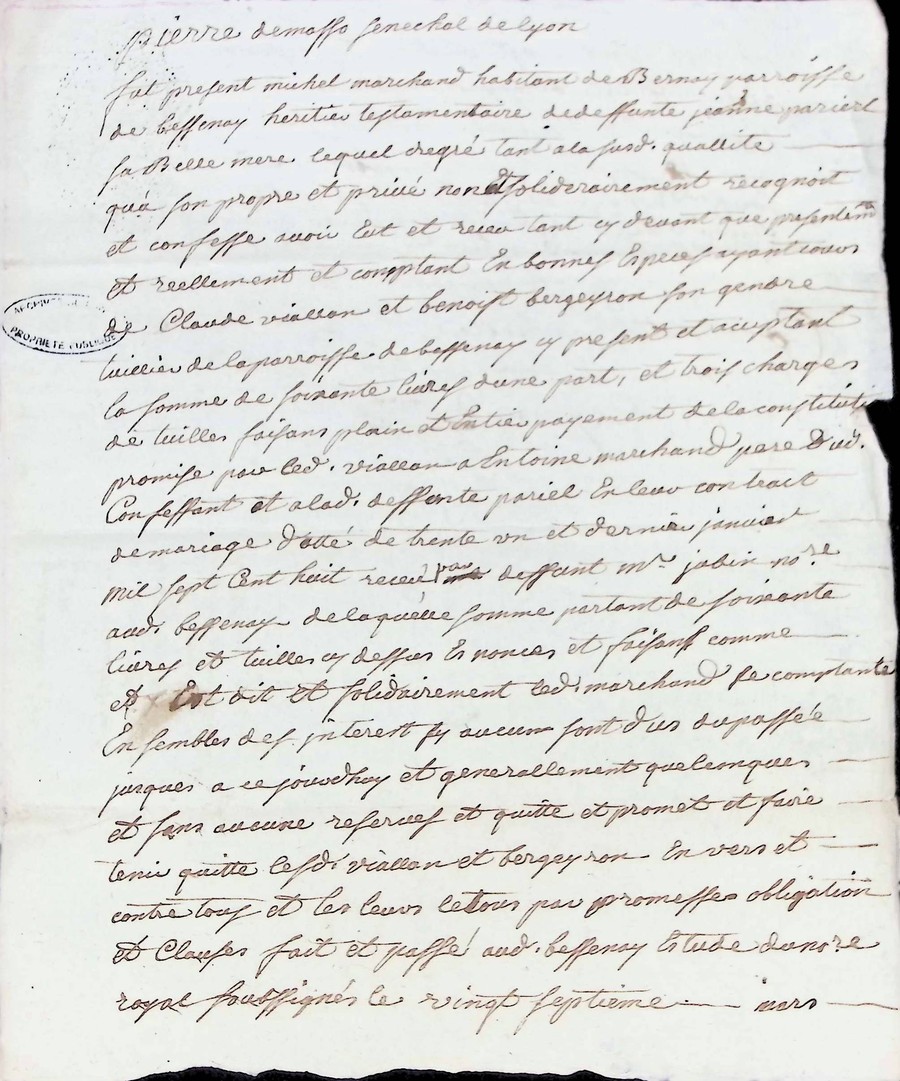 pierre demasso senechal de lyon
fut present michel marchand habitant de Bernay parroisse
de bessenay heritier testamentaire dedeffunte jeanne pariel
sa Belle mere lequel degré tant a la susd. quallite
qua son propre et privé nom et soliderairement recognoit
et confesse avoir Eut et receu tant cy devant que presentem
et reellement et comptant En bonnes Especes ayant cours
de Claude viallan et benoist bergeyron son gendre
tuillier de la parroisse de bessenay cy present et aceptant
la somme de soixante livres dune part, et trois charges
de tuilles faisans plain et Entier payement de la constituti
promise par led. viallan a Entoine marchand pere Dud.
Confessant et a lad. deffunte pariel En leur contract
de mariage datté de trente un et dernier janvier
mil sept Cent huit receu par deffunt mr. jabin nore
aud. bessenay de laquelle somme partant de soixante
livres et tuilles cy dessus Enonces et faisant comme
et Est dit et solidairement led. marchand se comptante
Ensembles des jnterest sy aucum sont dus dupassée
jusques a ce jourdhuy et generallement quelconques
et sans aucune reserves et quitte et promet et faire
tenir quitte lesd. viallan et bergeyron En vers et
contre tous et les leurs letous par promesses obligation
et Clauses fait et passé aud. bessenay Estude dunore
royal soubssignés le vingt septieme mars
ARCHIVES
PROPRIETE PUBLIQUE